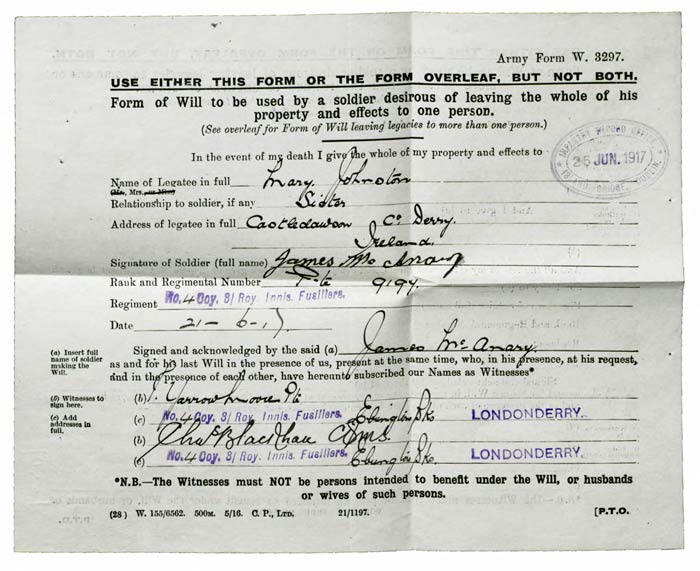 Army Form W. 3297.
USE EITHER THIS FORM OR THE FORM OVERLEAF, BUT NOT BOTH.
Form of Will to be used by a soldier desirous of leaving the whole of his
property and effects to one person.
(See overleaf for Form of Will leaving legacies to more than one person.)
INFANTRY RECORD OFFICE
26 JUN. 1917
ISLAND-BRIDGE, DUBLIN.
In the event of my death I give the whole of my property and effects to
Name of Legatee in full Mary Johnston
(Mr., Mrs., or Miss)
Relationship to soldier, if any Sister
Address of legatee in full Castledawson Co Derry.
Ireland.
Signature of Soldier (full name) James Mc Anary
Rank and Regimental Number Pte 9194.
Regiment No. 4 Coy. 3/ Roy. Innis. Fusiliers.
Date 21-6-17
(a) Insert full
name of soldier
making the
Will.
Signed and acknowledged by the said (a) James Mc Anary
as and for his last Will in the presence of us, present at the same time, who, in his presence, at his request,
and in the presence of each other, have hereunto subscribed our Names as Witnesses*
(b) Witnesses to
sign here.
(c) Add
addresses in
full.
(b) Pte
(c) No. 4 Coy. 3/ Roy. Innis. Fusiliers. Ebington Bks LONDONDERRY.
(b) Chas
(c) No. 4 Coy. 3/ Roy. Innis. Fusiliers. Ebington Bks. LONDONDERRY.
*N.B.—The Witnesses must NOT be persons intended to benefit under the Will, or husbands
or wives of such persons.
(28) W. 155/6562. 500M. 5/16. C. P., LTD. 21/1197. [P.T.O.